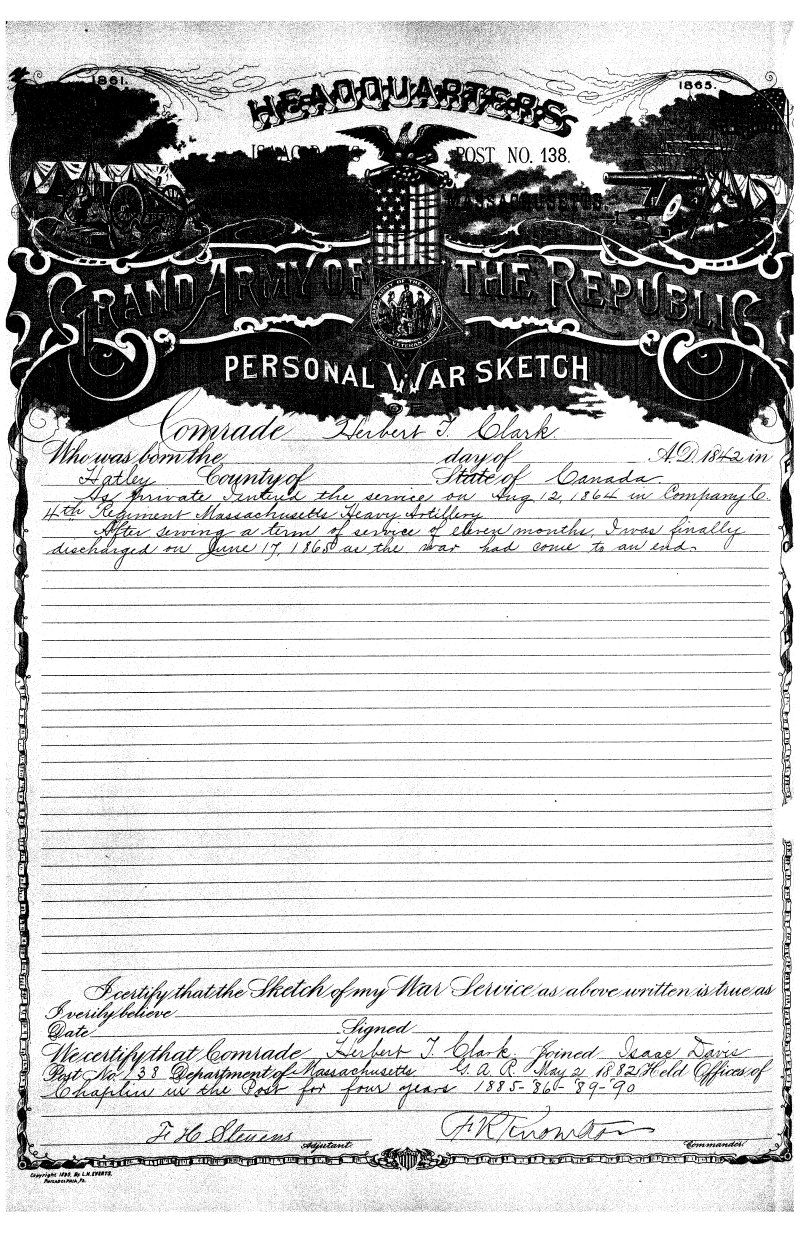 1861.
1865.
HEADQUARTERS
POST NO. 138.
MASSACHUSETTS
GRAND ARMY OF THE REPUBLIC
VETERAN
PERSONAL WAR SKETCH
Comrade Herbert T. Clark.
Who was born the day of A.D. 1842 in
Hatley County of State of Canada.
As Private I enterd the service on Aug 12, 1864 in Company C.
4th Regiment Massachusetts Heavy Artillery
After serving a term of service of eleven months, I was finally
discharged on June 17, 1865 as the war had come to an end.
I certify that the Sketch of my War Service as above written is true as
I verily believe
Date Signed
We certify that Comrade Herbert T. Clark. Joined Isaac Davis
Post No. 138 Department of Massachusetts G. A. R. May 2 1882 Held Offices of
Chaplin in the Post for four years 1885-'86-'89-'90
F. H. Stevens
Adjutant.
F R Knowlton
Commander.
Copyright 1890, By L.H. EVERTS,
PHILADELPHIA, PA.